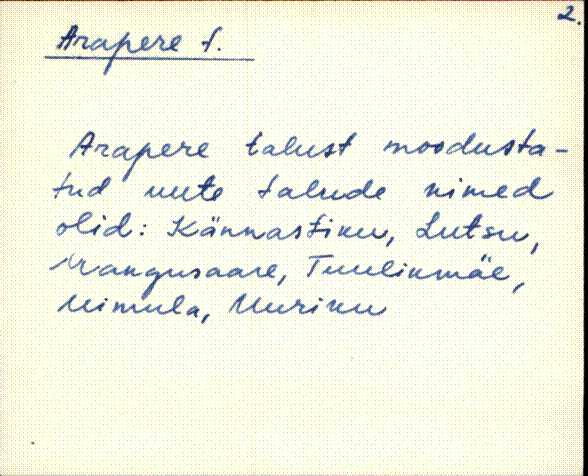 2.
Arapere t.
Arapere talust moodusta-
tud uute talude nimed
olid: Kännastiku, Lutsu,
Mangusaare, Tuulikmäe,
Uimula, Uuriku